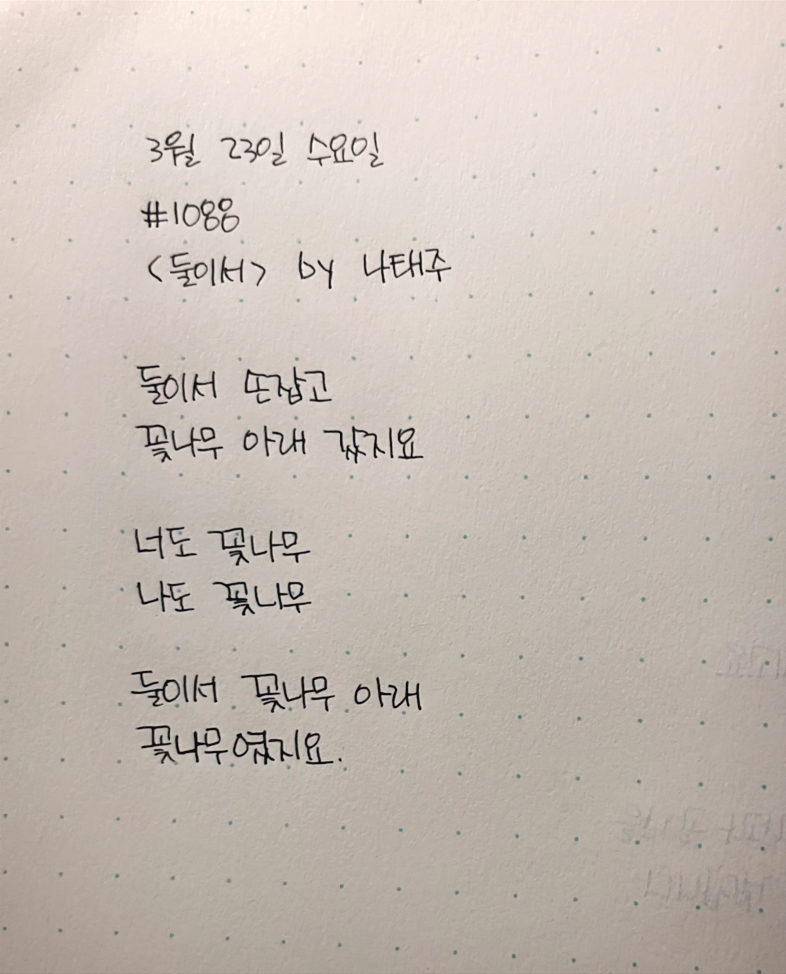 3월 23일 수요일
#1088
<둘이서> by 나태주
둘이서 손잡고
꽃나무 아래 갔지요
너도 꽃나무
나도 꽃나무
둘이서 꽃나무 아래
꽃나무였지요.